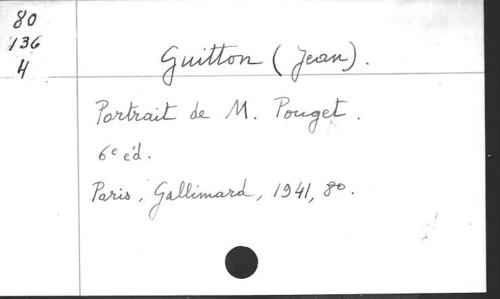 80
136
4
Guitton (Jean).
Portrait de M. Pouget.
6e éd.
Paris, Gallimard, 1941, 8o.